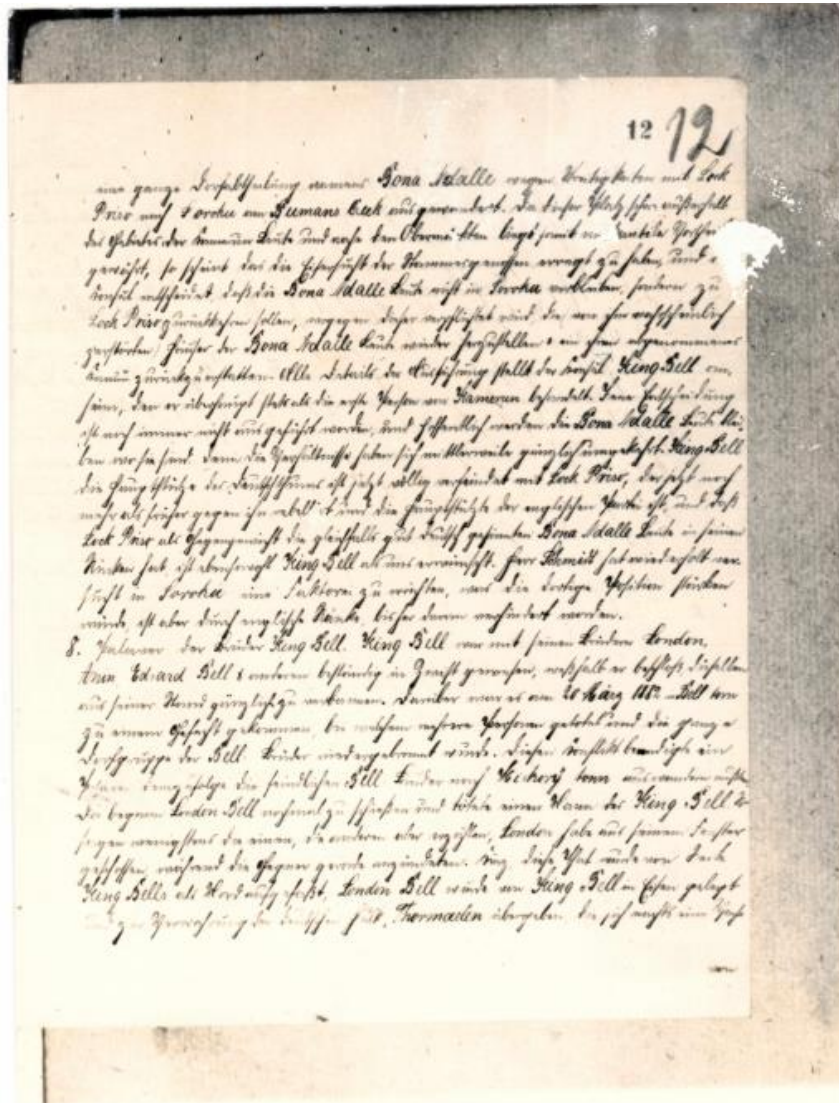 12 12
eine ganze Dorfabtheilung namens Bona Ndalle wegen Streitigkeiten mit Lock
Priso nach Soroku am Bumans Creek ausgewandert. Da dieser Platz schon außerhalb
des Gebietes der Kamerun Leute und nahe den Obermärkten liegt somit
gewährt, so scheint das die Eifersucht der Stammesgenossen erregt zu haben, und
Konsul entscheidet, daß die Bona Ndalle Leute nicht in Soroku verbleiben, sondern zu
Lock Priso zurückkehren sollen, wogegen dieser verpflichtet wird, die von ihm wahrscheinlich
zerstörten Häuser der Bona Ndalle Leute wieder herzustellen & ein ihnen abgenommenes
Kanu zurückzuerstatten. Alle Details der Ausführung stellt der Konsul King Bell an
heim, den er überhaupt stets als die erste Person von Kamerun behandelt. Jene Entscheidung
ist noch immer nicht ausgeführt worden, und hoffentlich werden die Bona Ndalle Leute blei-
ben wo sie sind. Denn die Verhältnisse haben sich mittlerweile gänzlich umgekehrt. King Bell
die Hauptstütze des Deutschthums ist jetzt völlig verfeindet mit Lock Priso, der jetzt noch
mehr als früher gegen ihn rebellirt und die Hauptstütze der englischen Partei ist, und daß
Lock Priso als Gegengewicht die gleichfalls gut deutsch gesinnten Bona Ndalle Leute in seinem
Rücken hat, ist ebensowohl King Bell als uns erwünscht. Herr Schmidt hat wiederholt ver-
sucht in Soroku eine Faktorei zu errichten, was die dortige Position stärken
würde, ist aber durch englische Ränke bisher daran verhindert worden.
8. Palaver der Brüder King Bell. King Bell war mit seinen Brüdern London,
Edward Bell & anderen beständig in Zwist gewesen, weßhalb er beschloß dieselben
aus seiner Stadt gänzlich zu verbannen. Darüber war es am 20 März 1882 Bell town
zu einem Gefecht gekommen, bei welchem mehrere Personen getötet und die ganze
Dorfgruppe der Bell Brüder niedergebrannt wurde. Diesen Konflikt beendigte ein
demzufolge die feindlichen Bell Brüder nach Hickory town auswandern mußten
Da begann London Bell nochmal zu schießen und tötete einen Mann des King Bell So
sagen wenigstens die einen, die anderen aber erzählen, London habe aus seinem Fenster
geschossen, während die Gegner gerade anzündeten. diese That wurde von Seite
King Bells als Mord aufgefaßt, London Bell wurde von King Bell in Eisen gelegt
und zur Verwahrung der deutschen Thormaelen übergeben, die sich nachts eine